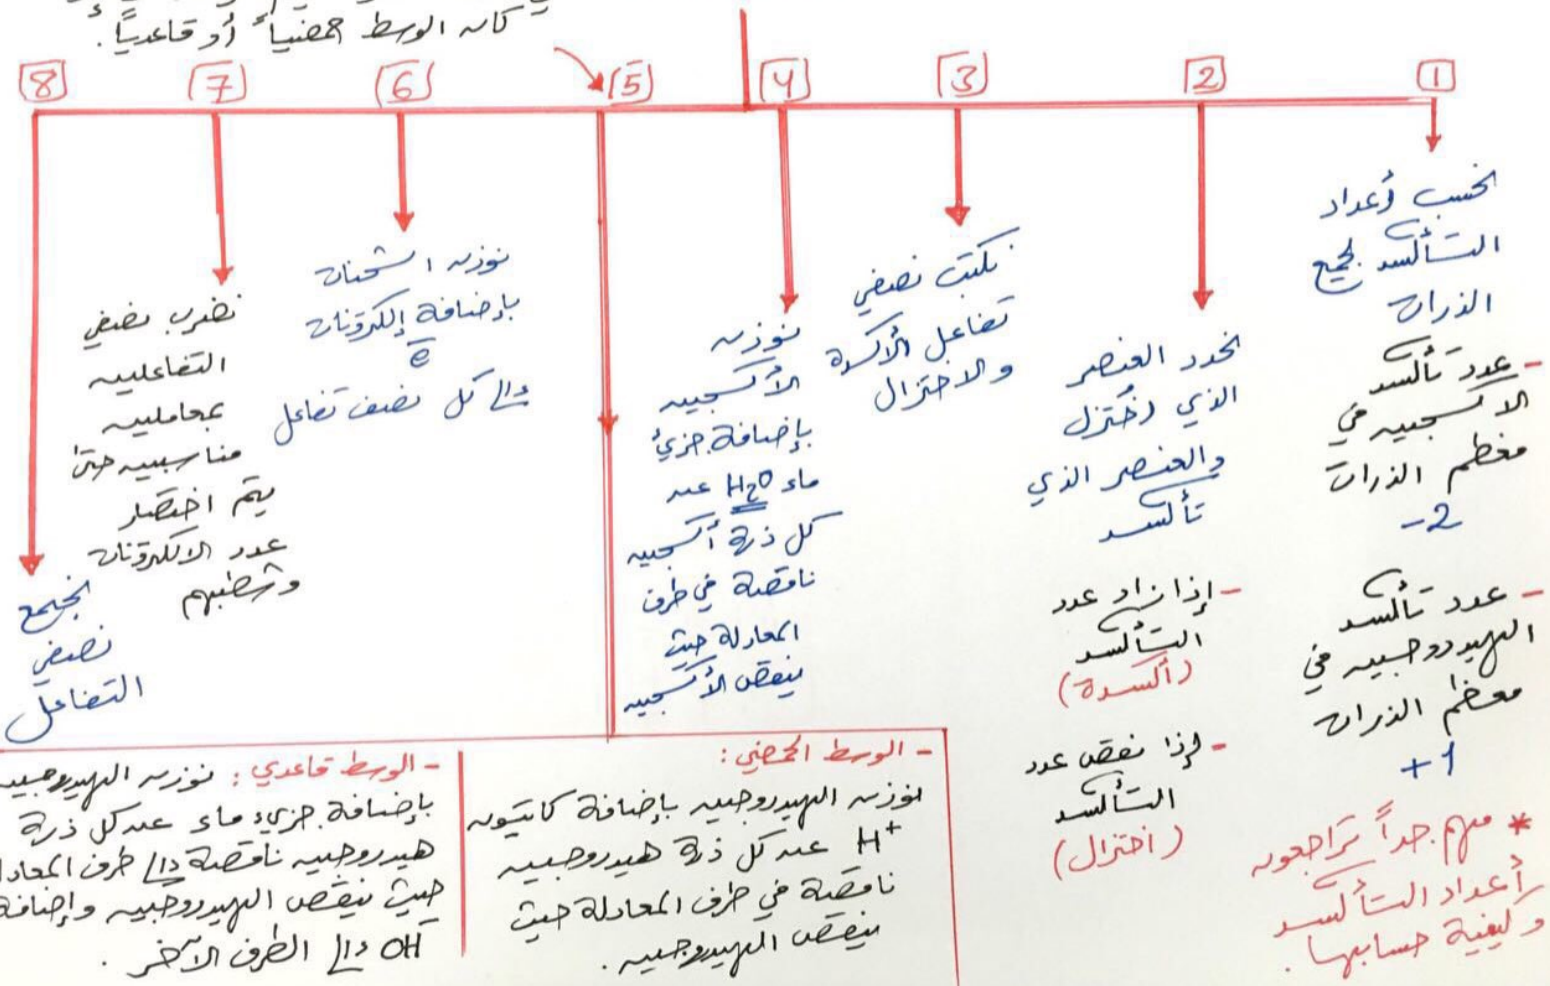 كان الوسط حمضياً أو قاعدياً.
1
نحسب أعداد
التأكسد لجميع
الذرات
- عدد تأكسد
الاكسجين في
معظم الذرات
-2
- عدد تأكسد
الهيدروجين في
معظم الذرات
+1
* مهم جداً تراجعون
أعداد التأكسد
وكيفية حسابها.
2
نحدد العنصر
الذي اختزل
والعنصر الذي
تأكسد
- إذا زاد عدد
التأكسد
(أكسدة)
- إذا نقص عدد
التأكسد
(اختزال)
3
نكتب نصفي
تفاعل الأكسدة
والاختزال
4
نوزن
الأكسجين
بإضافة جزيء
ماء H2O عن
كل ذرة أكسجين
ناقصة في طرف
المعادلة حيث
ينقص الأكسجين
5
- الوسط الحمضي:
نوزن الهيدروجين بإضافة كاتيون
H+ عن كل ذرة هيدروجين
ناقصة في طرف المعادلة حيث
ينقص الهيدروجين.
- الوسط قاعدي: نوزن الهيدروجين
بإضافة جزيء ماء عن كل ذرة
هيدروجين ناقصة إلى طرف المعادلة
حيث ينقص الهيدروجين وإضافة
OH- إلى الطرف الآخر.
6
نوزن الشحنات
بإضافة إلكترونات
e-
إلى كل نصف تفاعل
7
نضرب نصفي
التفاعلين
بمعاملين
مناسبين حتى
يتم اختصار
عدد الالكترونات
وشطبهم
8
نجمع
نصفي
التفاعل